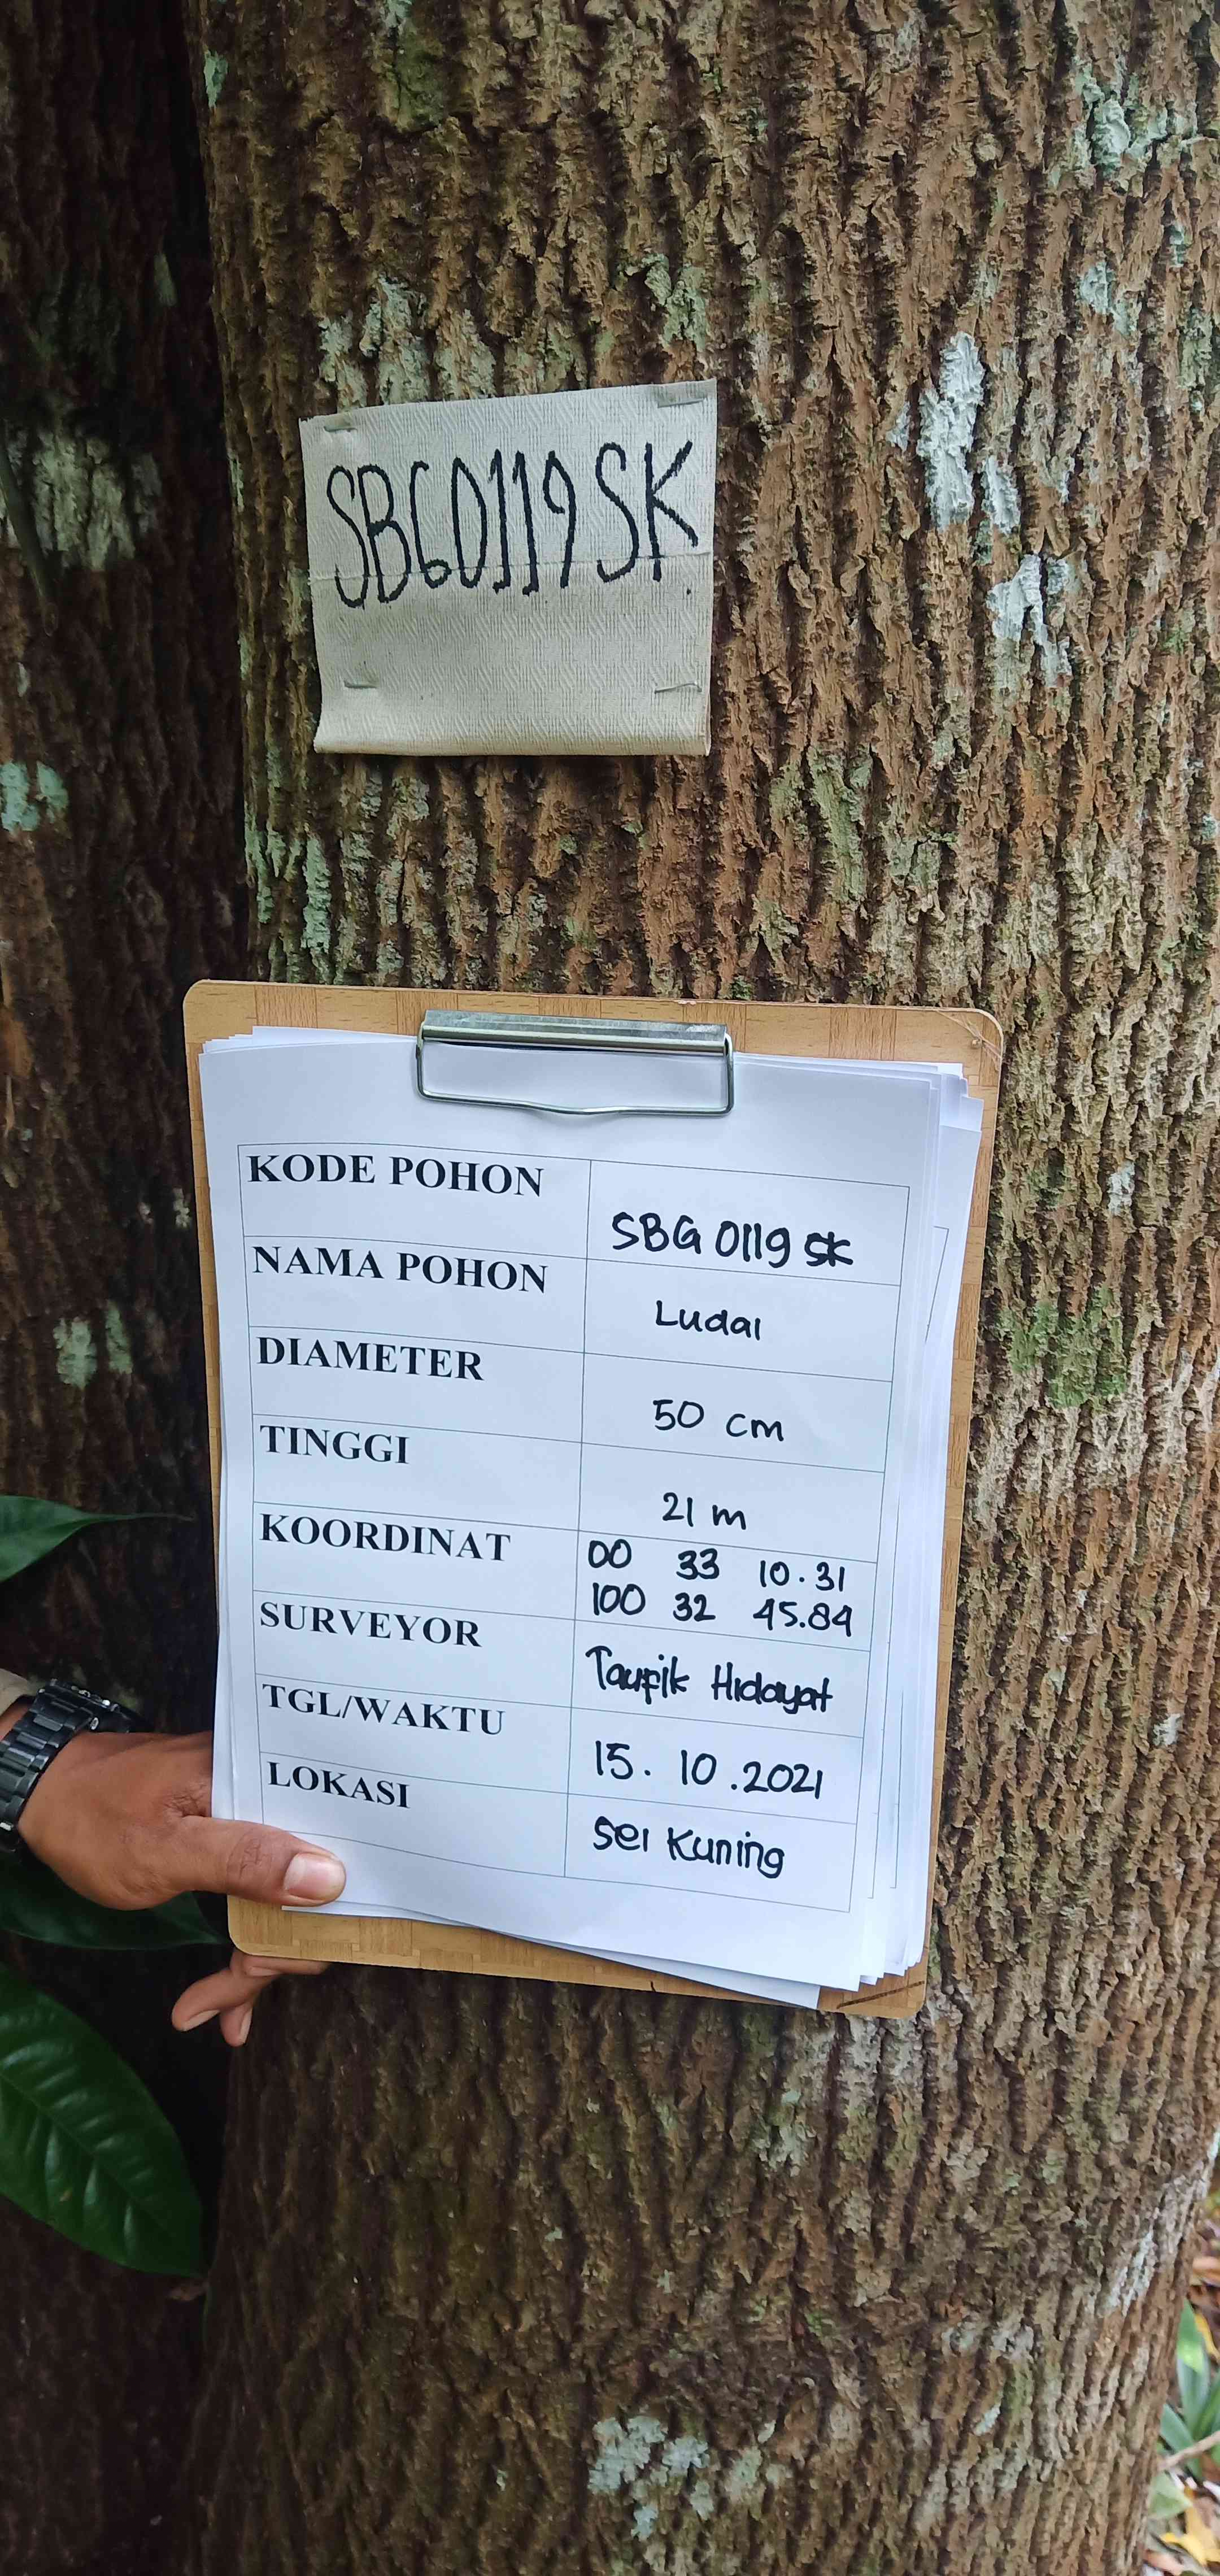 SBG0119 SK
KODE POHON
SBG 0119 SK
NAMA POHON
Ludai
DIAMETER
50 cm
TINGGI
21 m
KOORDINAT
00 33 10.31
100 32 45.84
SURVEYOR
Taufik Hidayat
TGL/WAKTU
15. 10 .2021
LOKASI
Sei Kuning